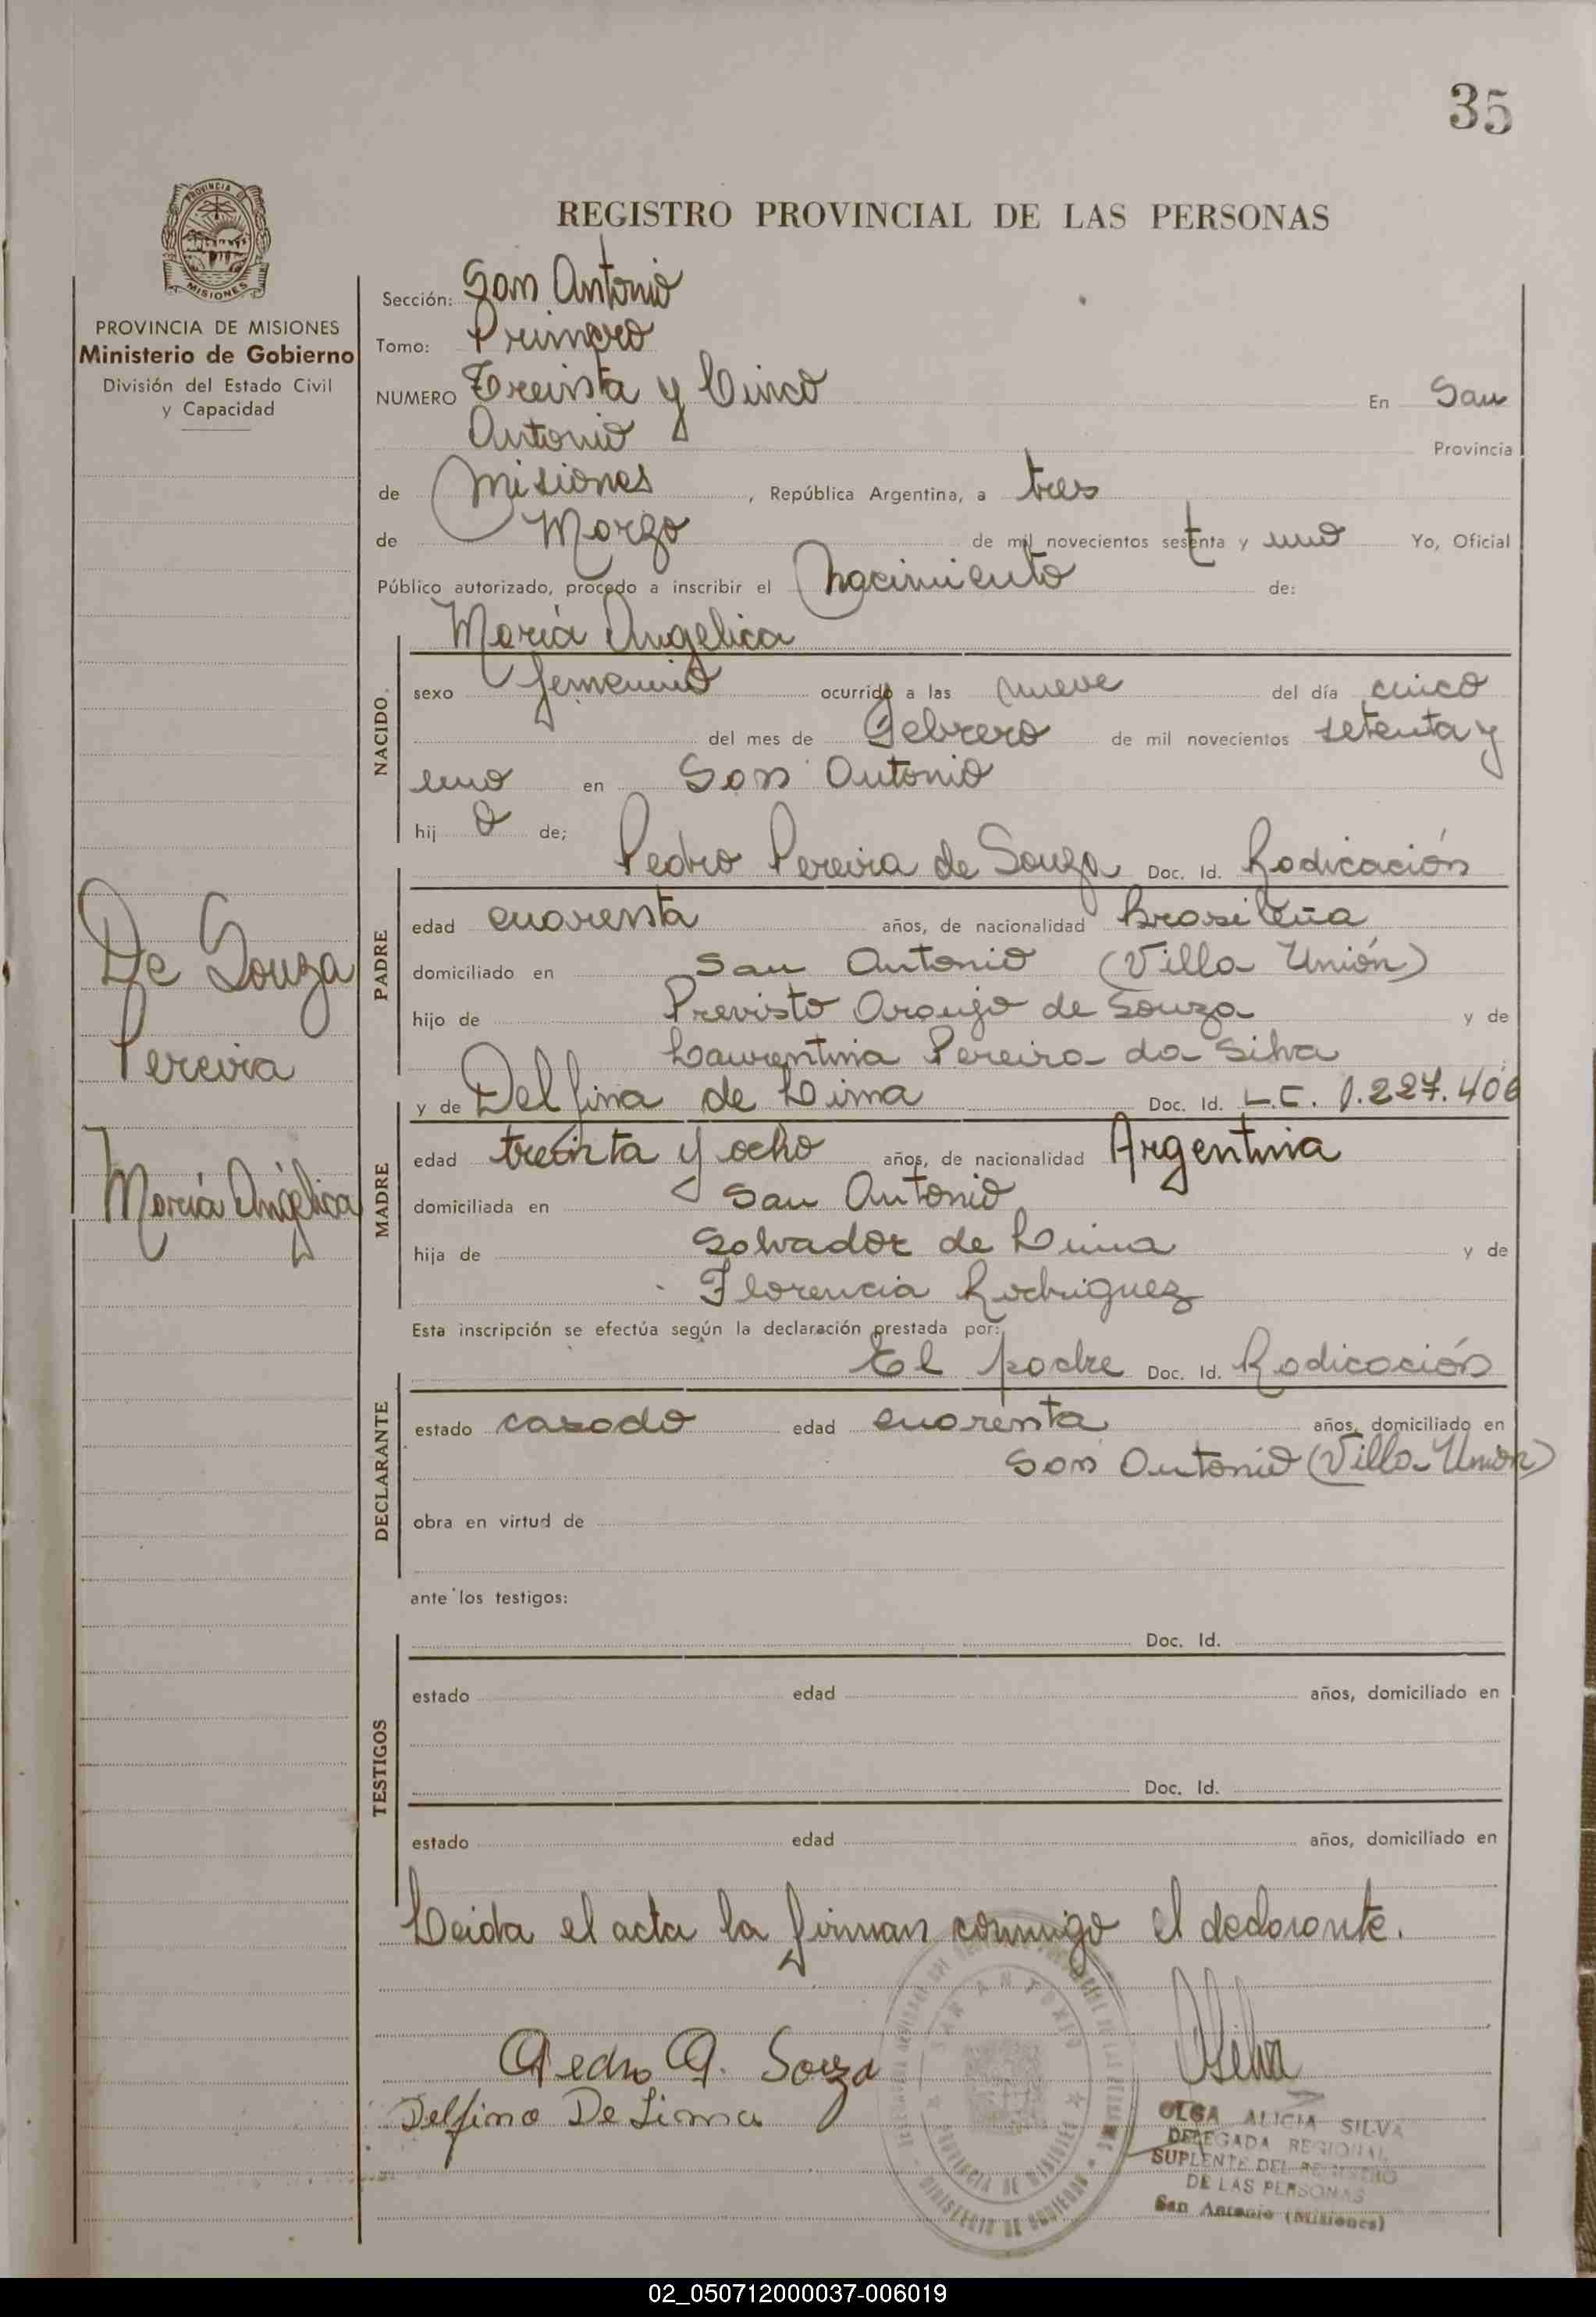 35
PROVINCIA DE
MISIONES
PROVINCIA DE MISIONES
Ministerio de Gobierno
División del Estado Civil
y Capacidad
De Souza
Pereira
María Angélica
REGISTRO PROVINCIAL DE LAS PERSONAS
Sección: San Antonio
Tomo: Primero
NUMERO Treinta y Cinco En San
Antonio Provincia
de Misiones, República Argentina, a tres
de Marzo de mil novecientos setenta y uno Yo, Oficial
Público autorizado, procedo a inscribir el Nacimiento de:
NACIDO
María Angelica
sexo femenino ocurrido a las nueve del día cinco
del mes de Febrero de mil novecientos setenta y
uno en San Antonio
hij a de;
PADRE
Pedro Pereira de Souza Doc. Id. Radicación
edad cuarenta años, de nacionalidad Brasileña
domiciliado en San Antonio (Villa Unión)
hijo de Previsto Araujo de Souza y de
Laurentina Pereira da Silva
MADRE
y de Delfina de Lima Doc. Id. L.C. 1.227.406
edad treinta y ocho años, de nacionalidad Argentina
domiciliada en San Antonio
hija de Salvador de Lima y de
Florencia Rodriguez
Esta inscripción se efectúa según la declaración prestada por:
DECLARANTE
El padre Doc. Id. Radicación
estado casado edad cuarenta años, domiciliado en
San Antonio (Villa Unión)
obra en virtud de
ante los testigos:
TESTIGOS
Doc. Id.
estado edad años, domiciliado en
Doc. Id.
estado edad años, domiciliado en
Leida el acta la firman conmigo el declarante.
Pedro A. Souza
Delfina De Lima
SAN ANTONIO
PROVINCIA DE MISIONES
MINISTERIO DE GOBIERNO
OSilva
OLGA ALICIA SILVA
DELEGADA REGIONAL
SUPLENTE DEL REGISTRO
DE LAS PERSONAS
San Antonio (Misiones)
02_050712000037-006019